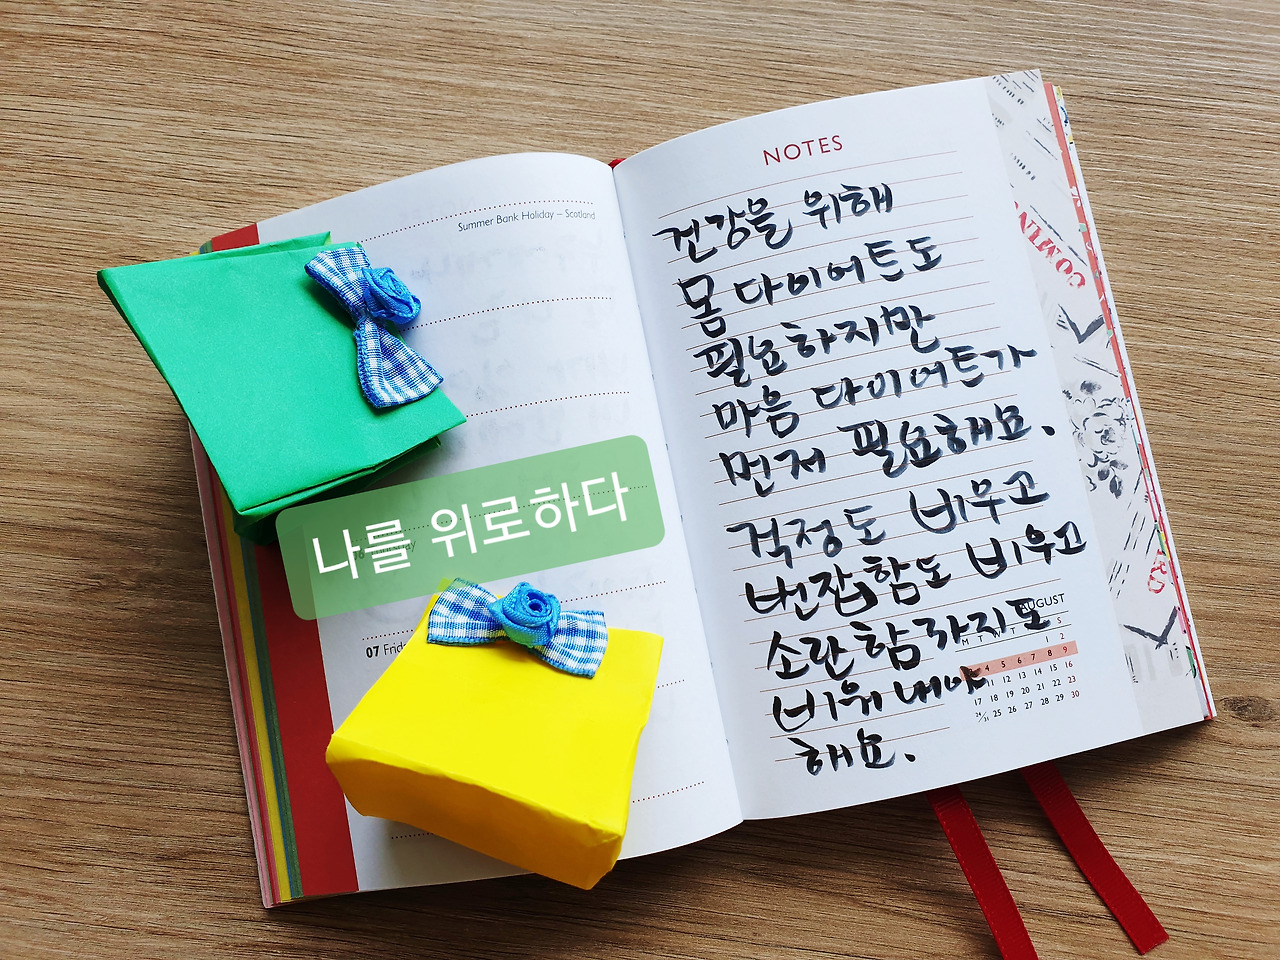 Summer Bank Holiday – Scotland
나를 위로하다
07
NOTES
건강을 위해
몸 다이어트도
필요하지만
마음 다이어트가
먼저 필요해요.
걱정도 비우고
번잡함도 비우고
소란함까지도
비워내야
해요.
AUGUST
M T W T S
1 2
4 5 6 7 8 9
11 12 13 14 15 16
17 18 19 20 21 22 23
24/31 25 26 27 28 29 30